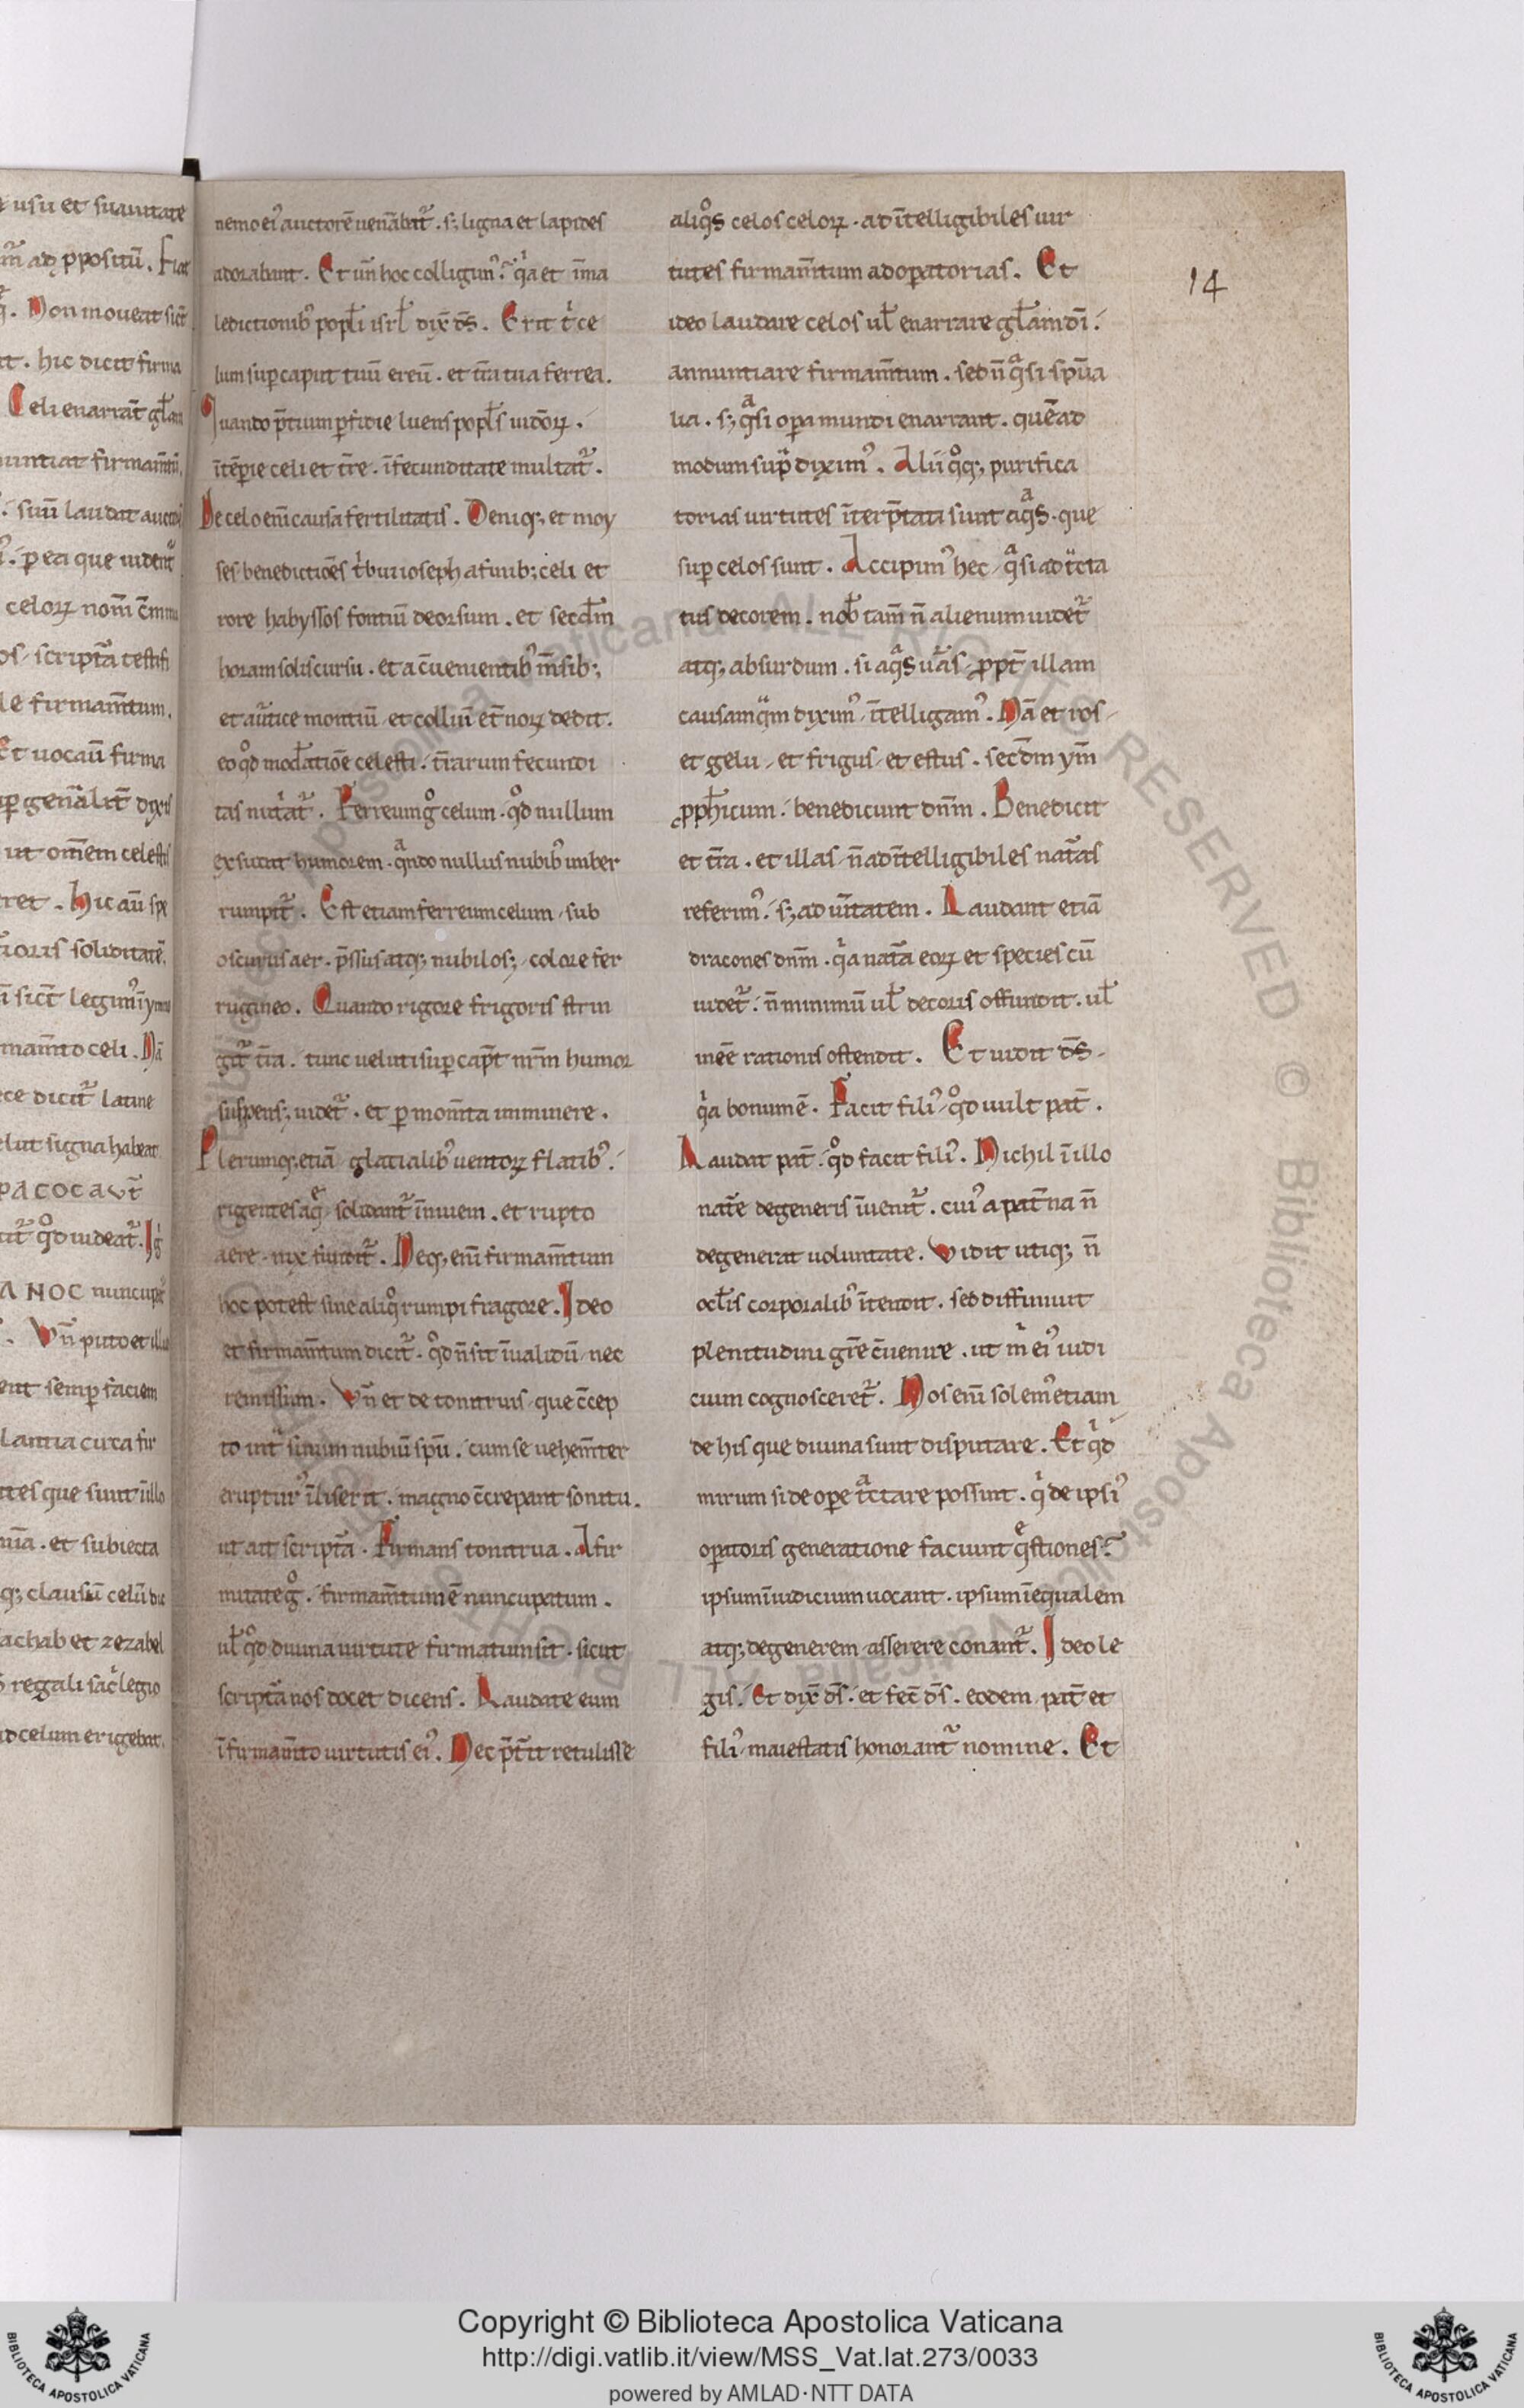 usu et suauitate
m̄ adp̱positū. Fiat
Non moueat sic̄
it. hic dicit firma
Celi enarrāt gl̄am
nuntiat firmam̄tū.
suū laudat auctorē
p ea que uident᷑
celoꝝ nom̄
os scriptā testifi
le firmam̄tum.
Et uocau̅ firma
ut om̄em celestis
ret. Hic au̅ spe
ioris soliditatē.
mam̄to celi. Nā
ce dicit᷑ latine
elut signa habeat
A NOC nuncupat᷑
Vn̄ puto et illu
ent semp̱ faciem
lantia circa fir
ntes que sunt īillo
nīa. et subiecta
qꝫ clausū celū
achab et zezabel
regali sac̄legio
ad celum erigebat.
nemo ei᷒ auctorē uenābat᷑. sꝫ ligna et lapides
adorabant. Et un̄ hoc colligim᷒? qͥa et īma
ledictionib᷒ popl̄i isrl̄ dix̄ d̄s. Erit tͥ ce
lum sup̱ caput tuū ereū. et t̄ra tua ferrea.
Quando p̄tium p̱fidie luens popl̄s iudōꝝ.
ītēp̱ie celi et t̄re. īfecunditate multat᷑.
De celo eni̅ causa fertilitatis. Deniqꝫ et moy
ses benedictiōēs tͥbui ioseph a finibꝫ celi et
rore habyssos fontiū deorsum. et secd̄m
horam solis cursu. et a c̄uenientib᷒ m̄sibꝫ
et au̅tice montiū et colliū et̄noꝝ dedit.
eo qͦd mod̄atiōe celesti. t̄rarum fecundi
tas nutͥat᷑. Ferreum gͦ celum. qͦd nullum
exsudat humorem. qᵃndo nullus nubib᷒ imber
rumpit᷑. Est etiam ferreum celum sub
oscurus aer. p̄ssus atqꝫ nubilosꝫ colore fer
rugineo. Quando rigore frigoris strin
git᷑ t̄ra. tunc uelut sup̱ cap̄t nr̄m humor
suspensꝫ uidet᷑. et p̱ mom̄ta imminere.
Plerumqꝫ etiā glacialib᷒ uentoꝝ flatib᷒.
rigentes aqͤ solidant᷑ īniuem. et rupto
aere. nix fundit᷑. Neqꝫ eni̅ firmam̄tum
hoc potest sine aliqͦ rumpi fragore. Ideo
et firmam̄tum dicit᷑. qͦd n̄ sit īualidū nec
remissum. Vn̄ et de tonitruis que c̄cep
to int͛ sinum nubiū spū. cum se uehem̄ter
eruptur᷒ īliserit. magno c̄crepant sonitu.
ut ait scriptā. Firmans tonitrua. A fir
mitate gͦ. firmam̄tum ē nuncupatum.
ul̄ qͦd diuina uirtute firmatum sit. sicut
scriptā nos docet dicens. Laudate eum
ī firmam̄to uirtutis ei᷒. Nec p̄t̄it retulisse
aliqͦs celos celoꝝ. ad ītelligibiles uir
tutes firmam̄tum ad op̱atorias. Et
ideo laudare celos ul̄ enarrare gl̄am dī.
annuntiare firmam̄tum. sed n̄ qᵃsi spūa
lia. sꝫ qᵃsi op̱a mundi enarrant. quēad
modum supͣ dixim᷒. Alii qͦqꝫ purifica
torias uirtutes īterp̄tati sunt aqᵃs. que
sup̱ celos sunt. Accipim᷒ hec qᵃsi ad tͣcta
tus decorem. nob̄ tam̄ n̄ alienum uidet᷑
atqꝫ absurdum. si aqᵃs uᵃs ꝓpt̄ illam
causam qͣm dixim᷒ ītelligam᷒. Nā et ros
et gelu et frigus et estus. secd̄m ym̄
ꝓph̄icum. benedicunt dn̄m. Benedicit
et t̄ra. et illas n̄ ad ītelligibiles natͣas
referim᷒. sꝫ ad u̅itatem. Laudant etiā
dracones dn̄m. qͥa natͣa eoꝝ et species cū
uidet᷑. n̄ minimū ul̄ decoris offundit. ul̄
ineē rationis ostendit. Et uidit d̄s.
qͥa bonum ē. Facit fili᷒ qͦd uult pat̄.
Laudat pat̄. qͦd facit fili᷒. Nichil ī illo
nat̄e degeneris īuenit᷑. cui᷒ a pat̄na n̄
degenerat uoluntate. Vidit utiqꝫ n̄
ocl̄is corporalib᷒ ītendit. sed diffiniuit
plenitudini gr̄e c̄uenire. ut mͥ ei᷒ iudi
cium cognosceret᷑. Nos eni̅ solem᷒ etiam
de his que diuina sunt disputare. Et qͥd
mirum si de op̱e tᵃctare possint. qͥ de ipsi᷒
op̱atoris generatione faciunt qͤstiones?
ipsum ī iudicium uocant. ipsum īequalem
atqꝫ degenerem asserere conant᷑. Ideo le
gis. Et dix̄ d̄s. et fec̄ d̄s. eodem pat̄ et
fili᷒ maiestatis honorant᷑ nomine. Et
14
Biblioteca Apostolica Vaticana ALL RIGHTS RESERVED ©
Copyright © Biblioteca Apostolica Vaticana
http://digi.vatlib.it/view/MSS_Vat.lat.273/0033
powered by AMLAD·NTT DATA
BIBLIOTECA APOSTOLICA VATICANA
BIBLIOTECA APOSTOLICA VATICANA